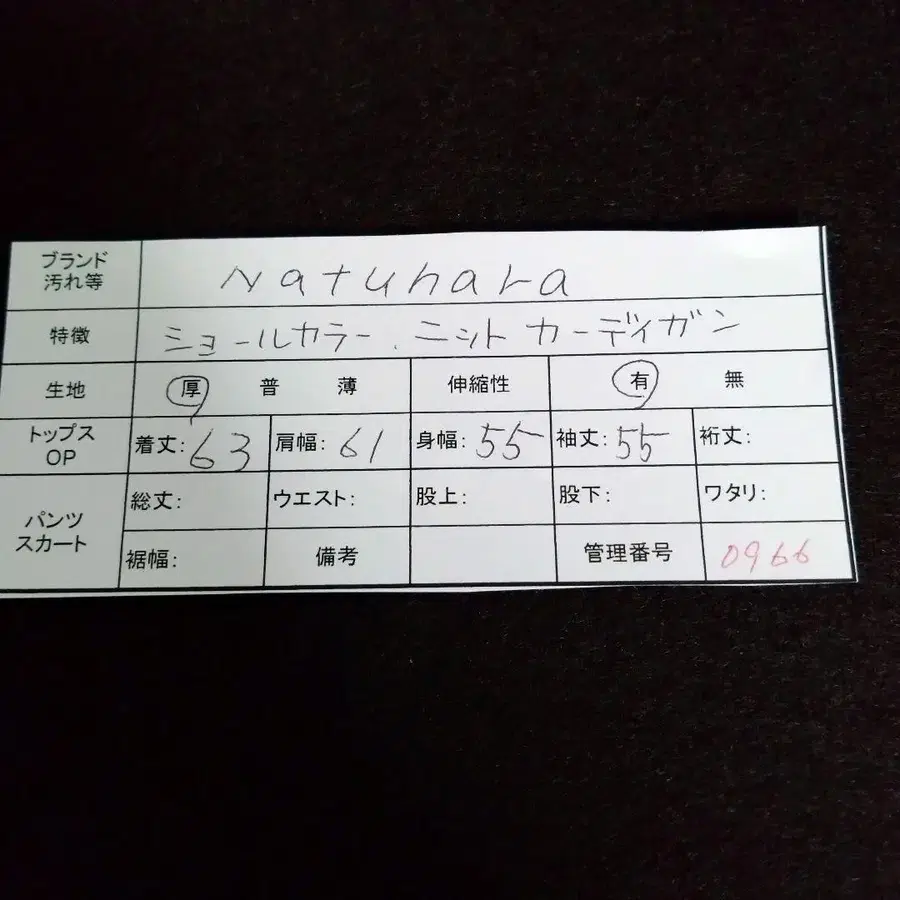 ブランド
汚れ等
Natuhara
特徴
ショールカラー、ニットカーディガン
生地 厚 普 薄 伸縮性 有 無
トップス
OP
着丈:63 肩幅:61 身幅:55 袖丈:55 裄丈:
パンツ
スカート
総丈: ウエスト: 股上: 股下: ワタリ:
裾幅: 備考 管理番号 0966